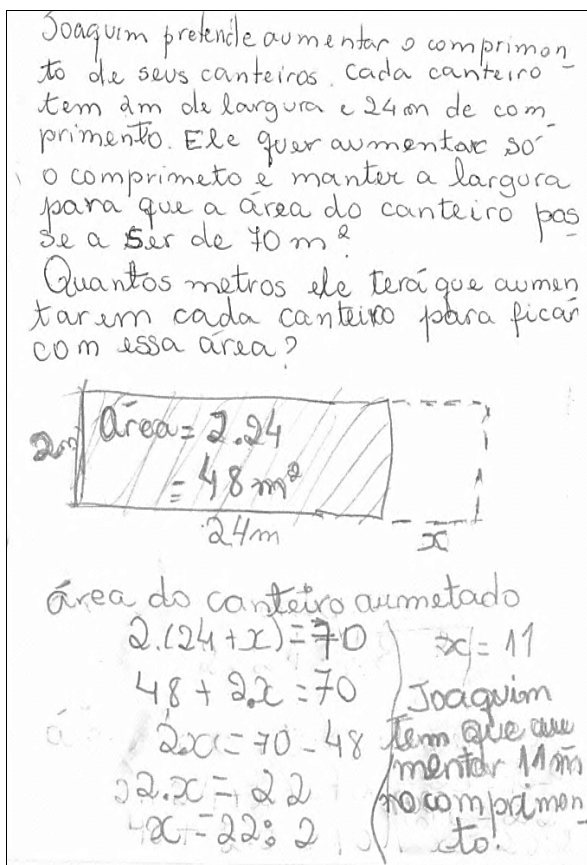 Joaquim pretende aumentar o comprimen
to de seus canteiros. Cada canteiro
tem 2m de largura e 24m de com
primento. Ele quer aumentar só
o comprimeto e manter a largura
para que a área do canteiro pas
se a ser de 70 m²
Quantos metros ele terá que aumen
tar em cada canteiro para ficar
com essa área?
área = 2.24
2m
= 48 m²
24m
x
área do canteiro aumetado
2.(24+x)=70
48 + 2.x = 70
2.x = 70 - 48
2.x = 22
x = 22 : 2
x = 11
Joaquim
tem que au
mentar 11 m
no comprimen
to.